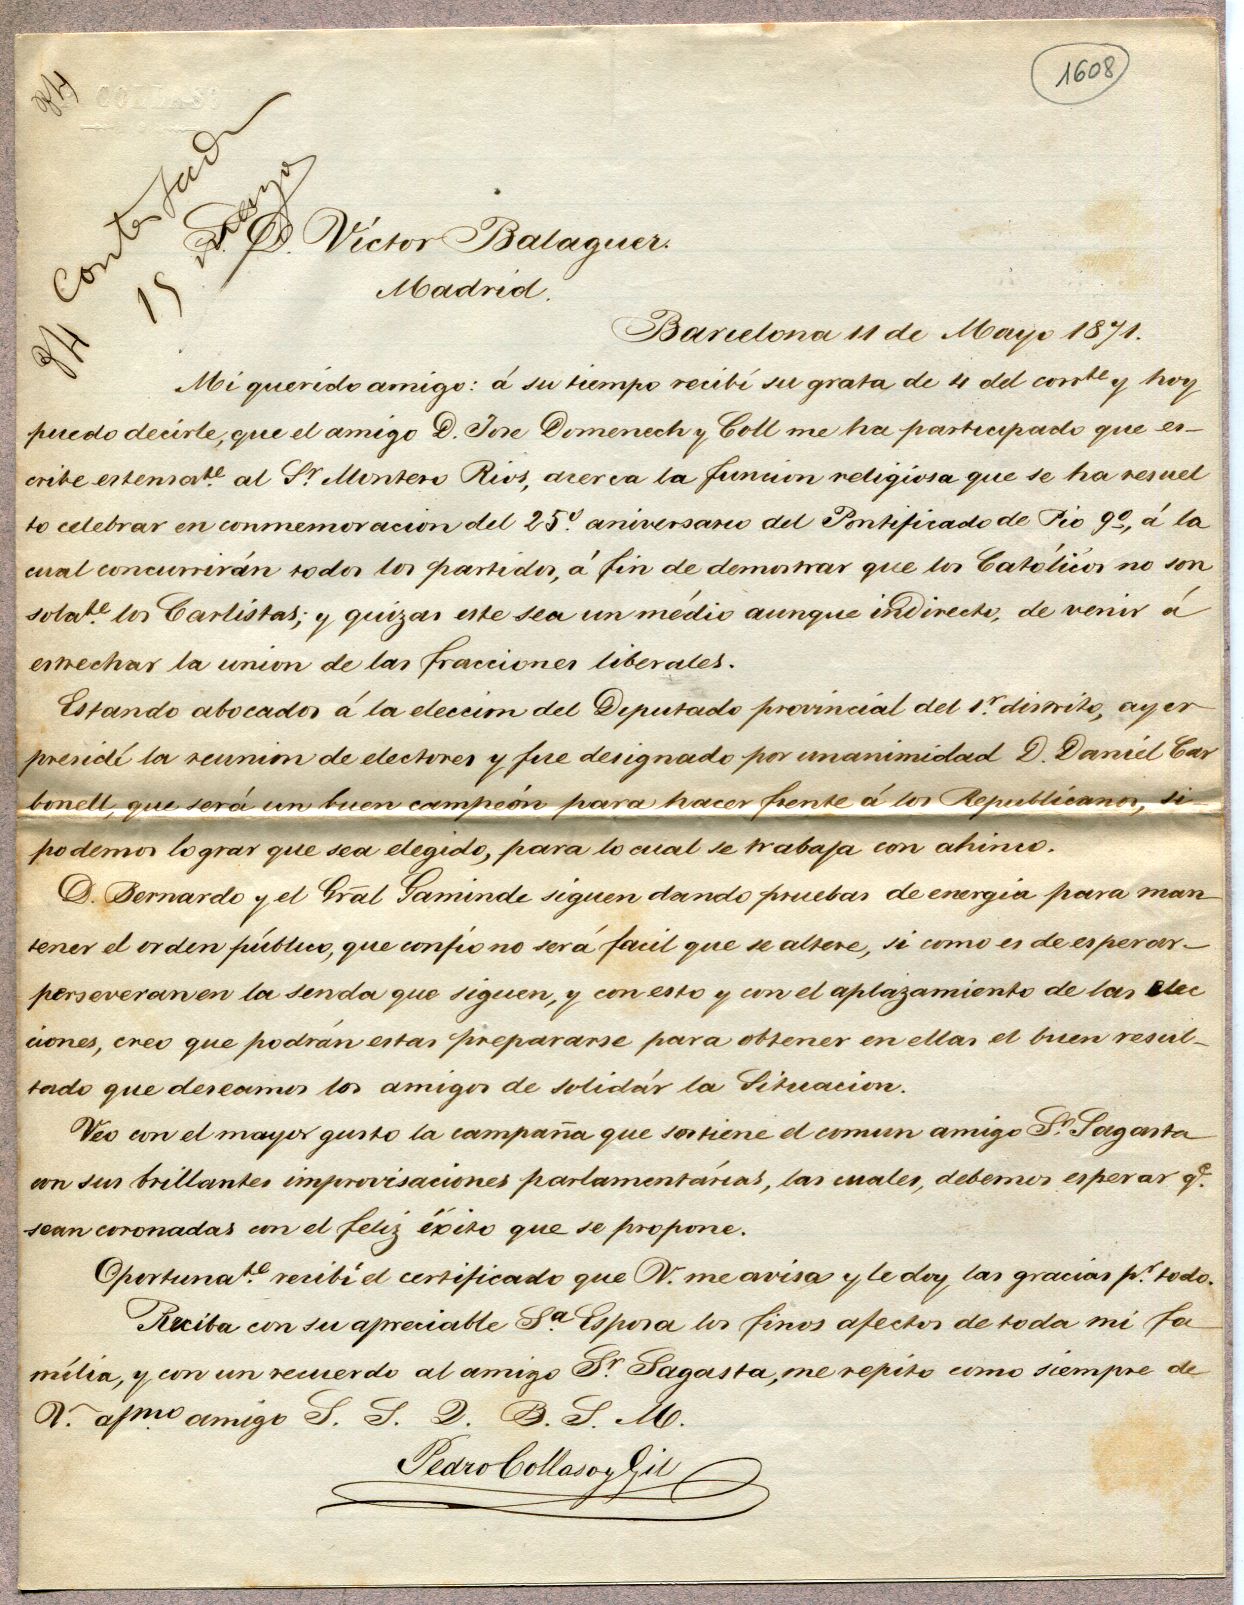 1608
Contestada
15 Mayo
S. D. Víctor Balaguer.
Madrid.
Barcelona 11 de Mayo 1871.
Mi querido amigo: á su tiempo recibí su grata de 4 del corrte y hoy
puedo decirle, que el amigo D. Jose Domenech y Coll me ha participado que es-
cribe estensate. al Sr. Montero Rios, acerca la funcion religiosa que se ha resuel
to celebrar en conmemoracion del 25º. aniversario del Pontificado de Pio 9º, á la
cual concurrirán todos los partidos, á fin de demostrar que los Católicos no son
solate. los Carlistas; y quizas este sea un médio aunque indirecto, de venir á
estrechar la union de las fracciones liberales.
Estando abocados á la eleccion del Diputado provincial del 1r. distrito, ayer
presidí la reunion de electores y fue designado por unanimidad D. Daniel Car
bonell, que será un buen campeón para hacer frente á los Republicanos, si-
podemos lograr que sea elegido, para lo cual se trabaja con ahinco.
D. Bernardo y el Gral Gaminde siguen dando pruebas de energia para man
tener el orden público, que confio no será facil que se altere, si como es de esperar-
perseveran en la senda que siguen, y con esto y con el aplazamiento de las elec
ciones, creo que podrán estas prepararse para obtener en ellas el buen resul-
tado que deseamos los amigos de solidár la Situacion.
Veo con el mayor gusto la campaña que sostiene el comun amigo Sr. Sagasta
con sus brillantes improvisaciones parlamentárias, las cuales, debemos esperar qe.
sean coronadas con el feliz éxito que se propone.
Oportunate. recibí el certificado que V. me avisa y le doy las gracias pr. todo.
Reciba con su apreciable Sa. Esposa los finos afectos de toda mi fa
milia, y con un recuerdo al amigo Sr. Sagasta, me repito como siempre de
V. afmo. amigo S. S. Q. B. S. M.
Pedro Collaso y Gil